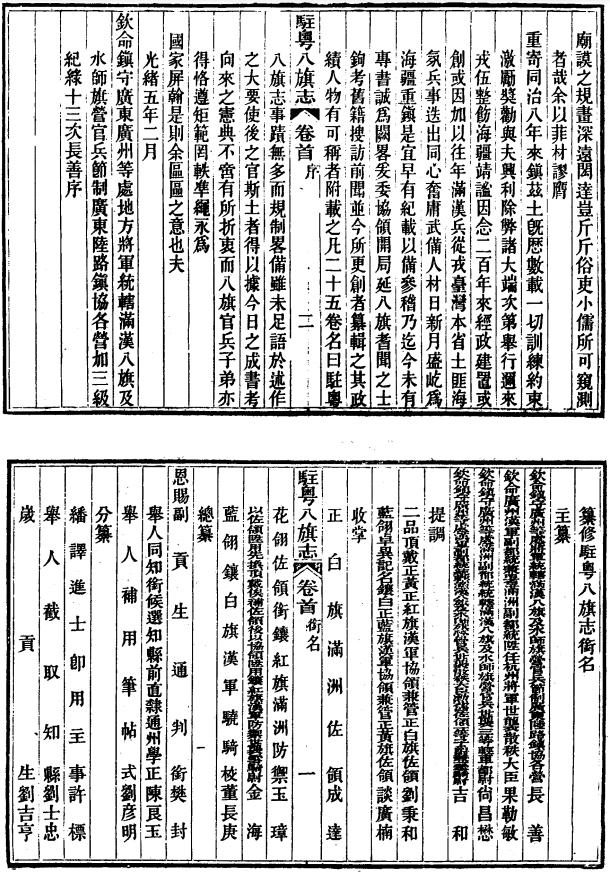 廟謨之規畫深遠閎達豈斤斤俗吏小儒所可窺測
者哉余以菲材謬膺
重寄同治八年來鎮茲土旣歷數載一切訓練約束
激勵獎勸與夫興利除弊諸大端次第舉行邇來
戎伍整飭海疆靖謐因念二百年來經政建置或
創或因加以往年滿漢兵從戎臺灣本省土匪海
氛兵事迭出同心奮庸武備人材日新月盛屹爲
海疆重鎮是宜早有紀載以備參稽乃迄今未有
專書誠爲闕畧爰委協領開局延八旗耆聞之士
鉤考舊籍搜訪前聞並今所更創者纂輯之其政
績人物有可稱者附載之凡二十五卷名曰駐粵
駐粵八旗志 卷首 序 二
八旗志事蹟無多而規制畧備雖未足語於述作
之大要使後之官斯土者得以據今日之成書考
向來之憲典不啻有所折衷而八旗官兵子弟亦
得恪遵矩範罔軼準繩永爲
國家屏翰是則余區區之意也夫
光緒五年二月
欽命鎮守廣東廣州等處地方將軍統轄滿漢八旗及
水師旗營官兵節制廣東陸路鎮協各營加三級
紀錄十三次長善序
纂修駐粵八旗志銜名
主纂
欽命鎮守廣州等處將軍統轄滿漢八旗及水師旗營官兵節制廣東陸路鎮協各營長善
欽命廣州漢軍副都統兼署滿洲副都統陞任杭州將軍世襲散秩大臣果勒敏
欽命鎮守廣州等處滿洲副都統統轄滿漢八旗及水師旗營官兵世襲三等輕車都尉尚昌懋
欽命鎮守廣州等處漢軍副都統吉和
提調
二品頂戴正黃正紅旗漢軍協領兼管正白旗佐領劉秉和
藍翎卓異記名鑲白正藍旗漢軍協領兼管正黃旗佐領談廣楠
收掌
正白旗滿洲佐領成達
駐粵八旗志 卷首 銜名 一
花翎佐領銜鑲紅旗滿洲防禦玉璋
金海
藍翎鑲白旗漢軍驍騎校董長庚
總纂
恩賜副貢生通判銜樊封
舉人同知銜候選知縣前直隸通州學正陳良玉
舉人補用筆帖式劉彥明
分纂
繙譯進士卽用主事許標
舉人截取知縣劉士忠
歲貢生劉吉亨